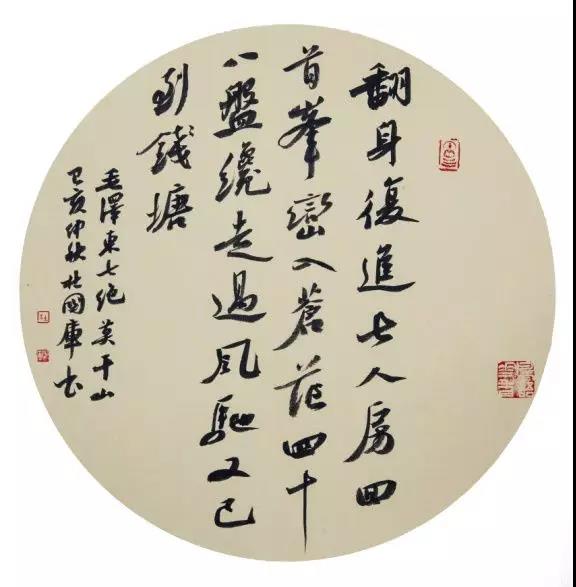 翻身復進七人房回
首峯巒入蒼茫四十
八盤纔走過風馳又已
到錢塘
毛澤東七绝莫干山
己亥仲秋杜國庫书